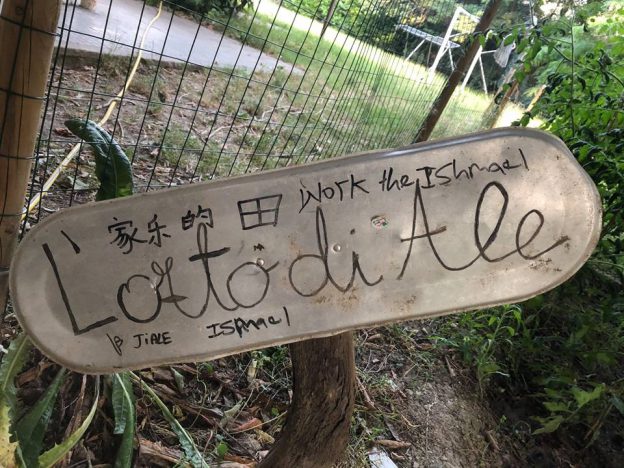 家乐的田 Work the Ishmael
L'orto di Ale
JiALE Ismael